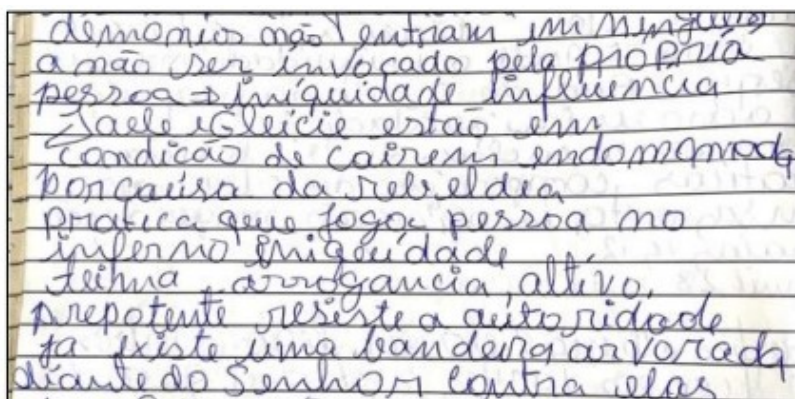 demonios não entram em ninguem
a não ser invocado pela propria
pessoa → iniquidade influencia
Jaele e Gleicie estão em
condicão de cairem endomoniada
porcausa da rebeldia
pratica que joga pessoa no
inferno iniquidade
teima, arrogancia, altivo,
prepotente resiste a autoridade
ja existe uma bandeira arvorada
diante do Senhor contra elas